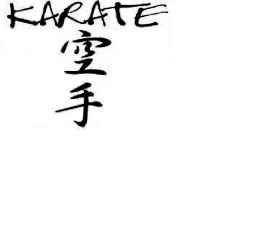 KARATE
空
手